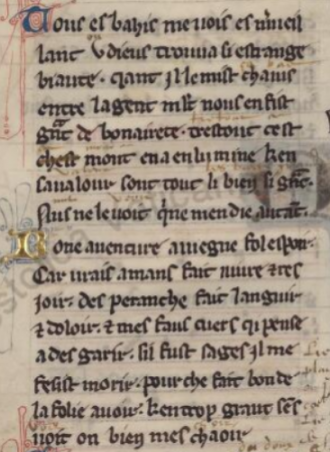 Tous esbahis me vois es mueil
lant v dieus trouva si estrange
biaute. qant il le mist chaius
entre la gent mlt nous en fist
gñt de bonairete. trestout cest
chest mont en a enlumine ken
sa valour sont tout li bien si gñt.
Nus ne le voit q̃ ne men die autãt.
Bone aventure aviegne fol espoir.
Car vrais amans fait vivre et res
ioir. des peranche fait languir
⁊ doloir. ⁊ mes faus cuers qi pense
ades garir. sil fust sages il me
fesist morir. pour che fait bon de
la folie avoir. ken trop grant sẽs
voit on bien mescheoir